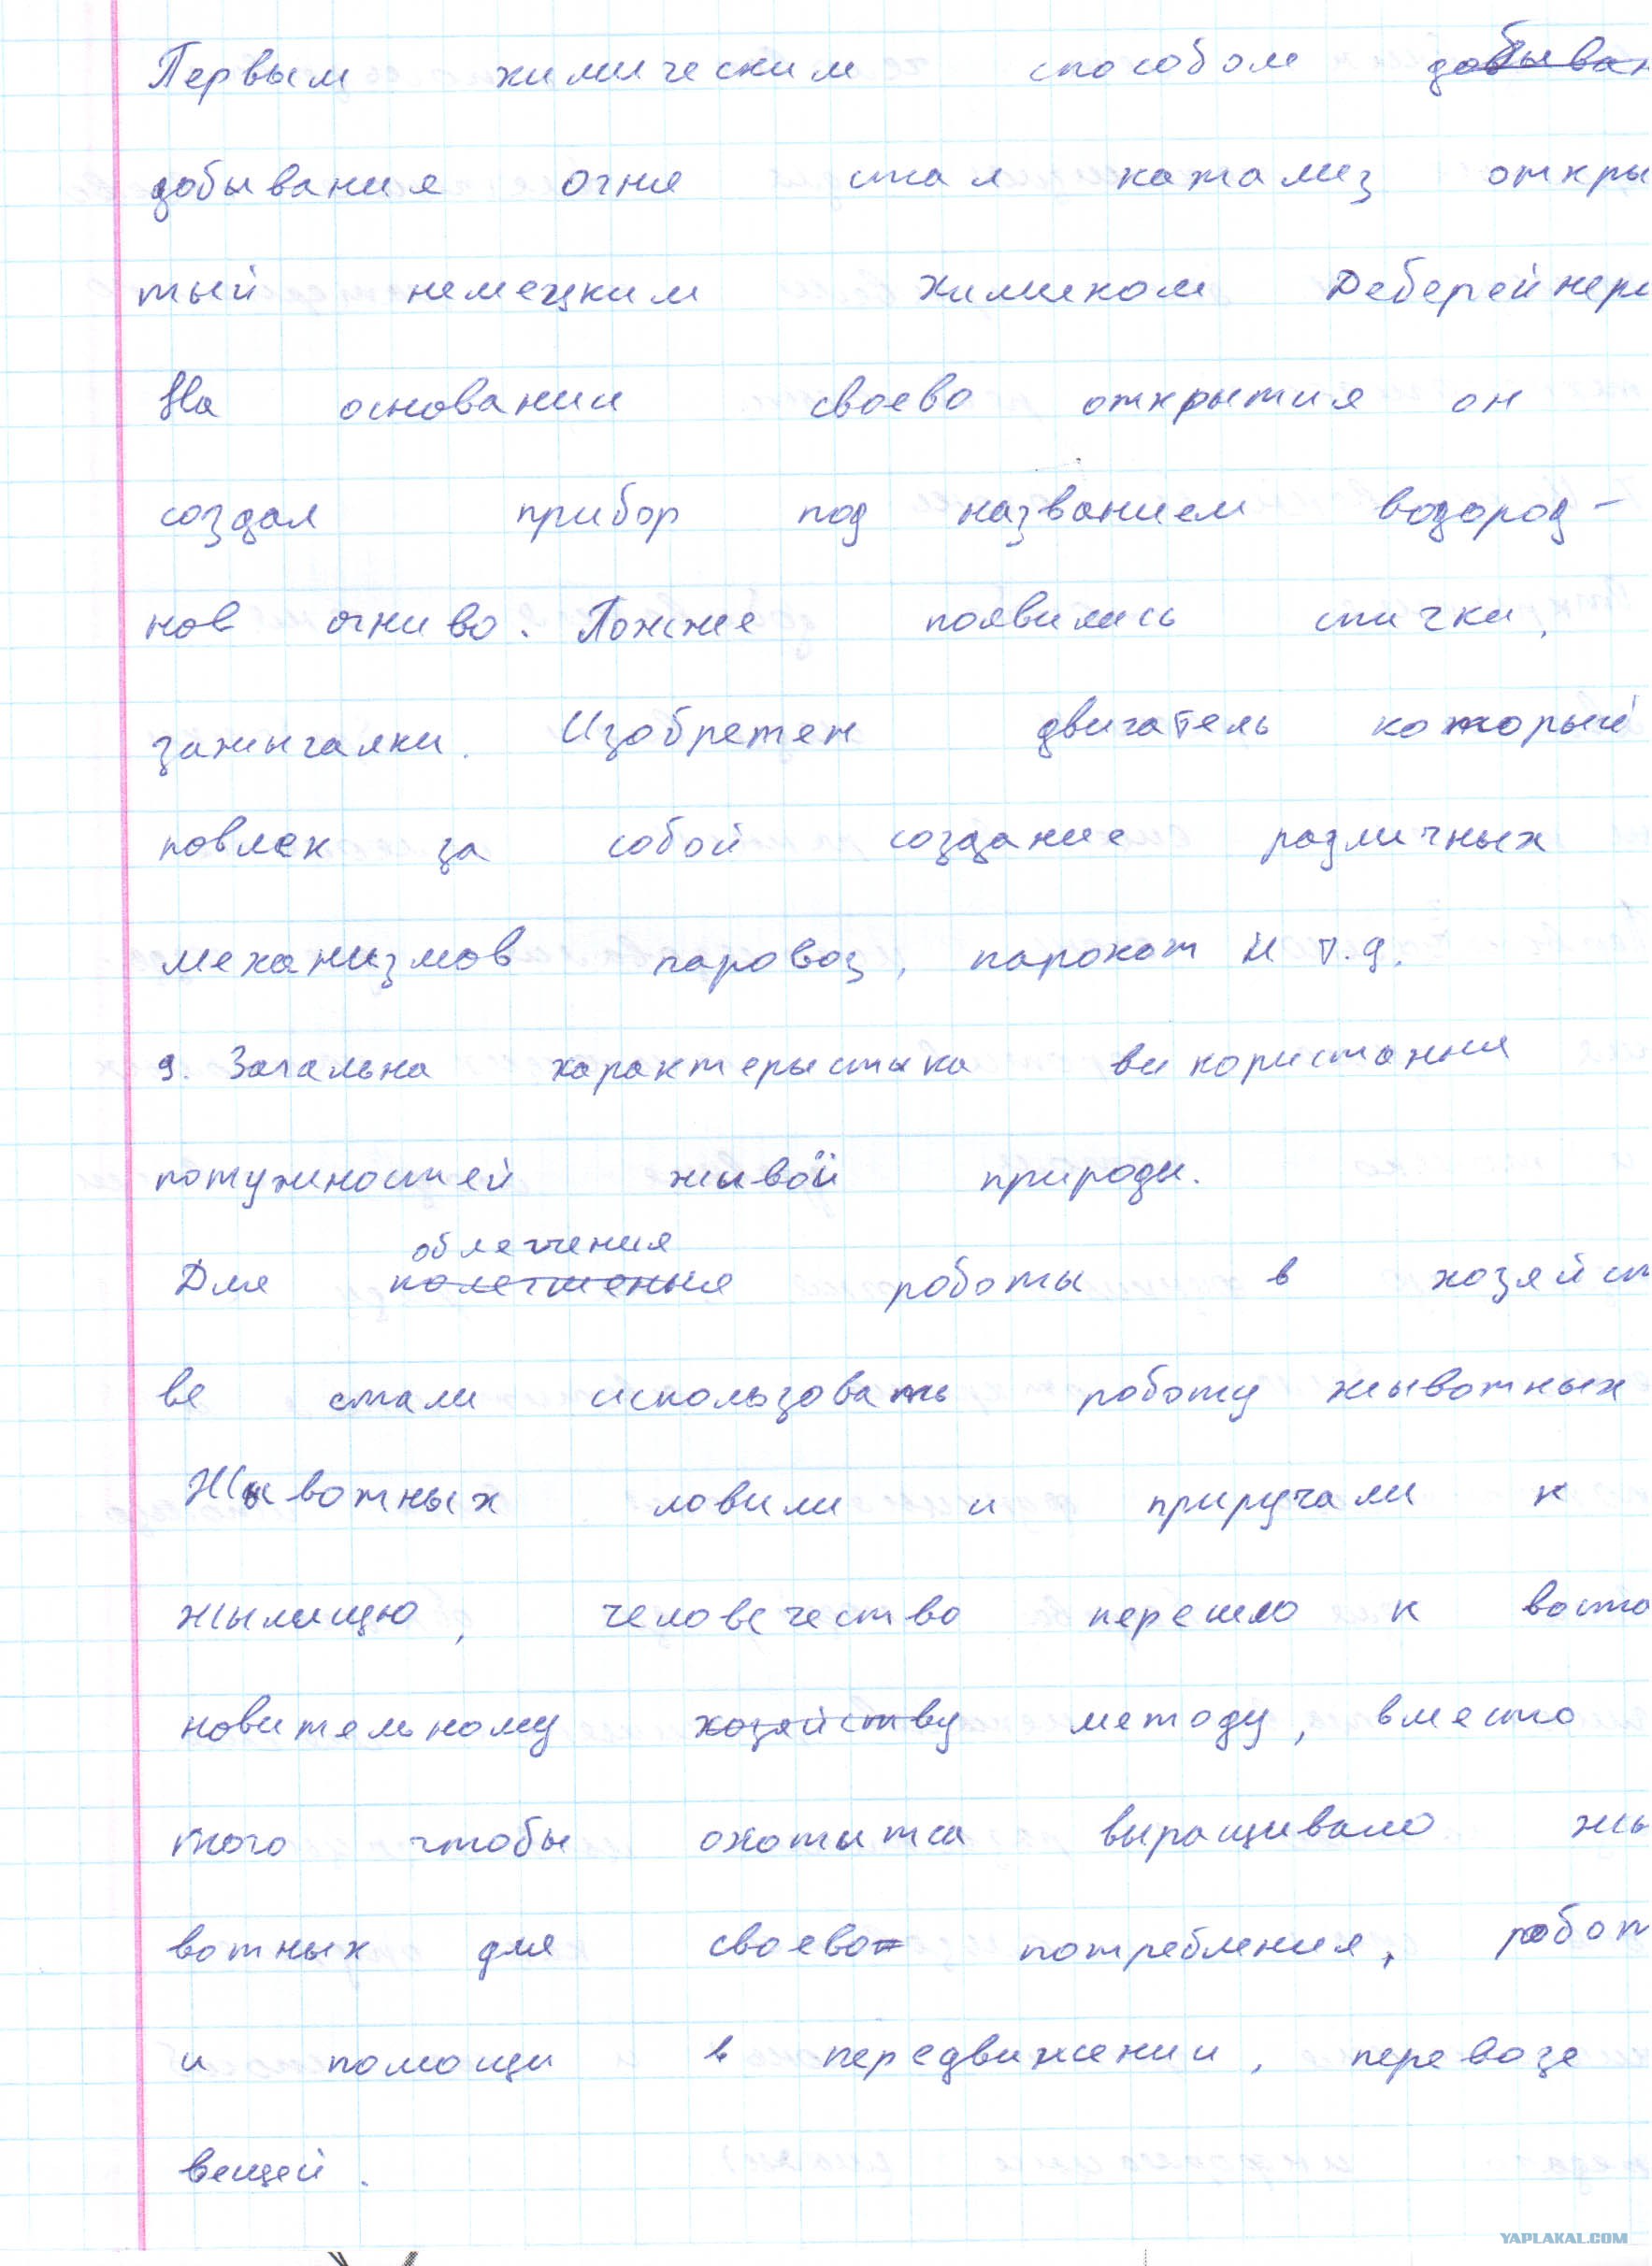 Первым химическим способом добыван
добывания огня стал катализ откры
тый немецким химиком Деберейнером
На основании своево открытия он
создал прибор под названием водород-
нов огниво. Пожже появились спички,
зажыгалки. Изобретен двигатель который
повлек за собой создание различных
механизмов паровоз, парохот и т.д.
9. Загальна характерыстыка використання
потужностей жывой природи.
облегчения
Для полегшенья роботы в хозяйст
ве стали использовать роботу жывотных
Жывотных ловили и приручали к
жылищю, человечество перешло к восто
новительному хозяйству методу, вместо
того чтобы охотится выращивало жы
вотных для своево потребления, робот
и помощи в передвижении, перевозе
вещей.
YAPLAKAL.COM